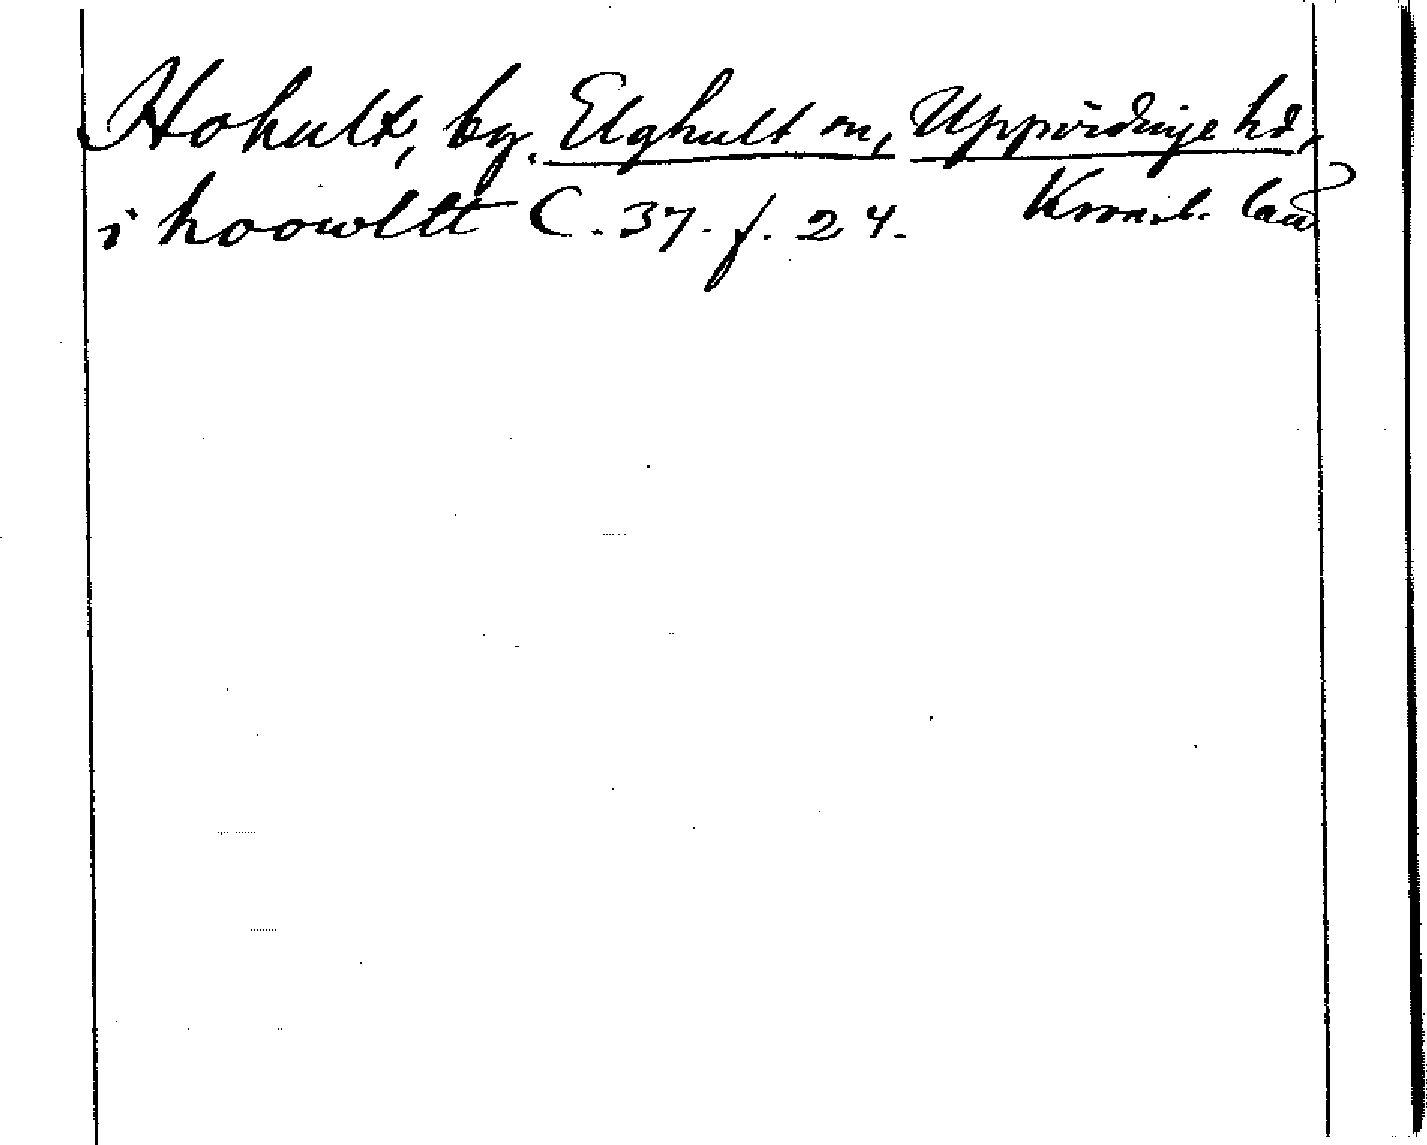 Hohult, by. Elghult sn, Uppvidinge hd,
i hoowltt C. 37. f. 24. Kronob. län